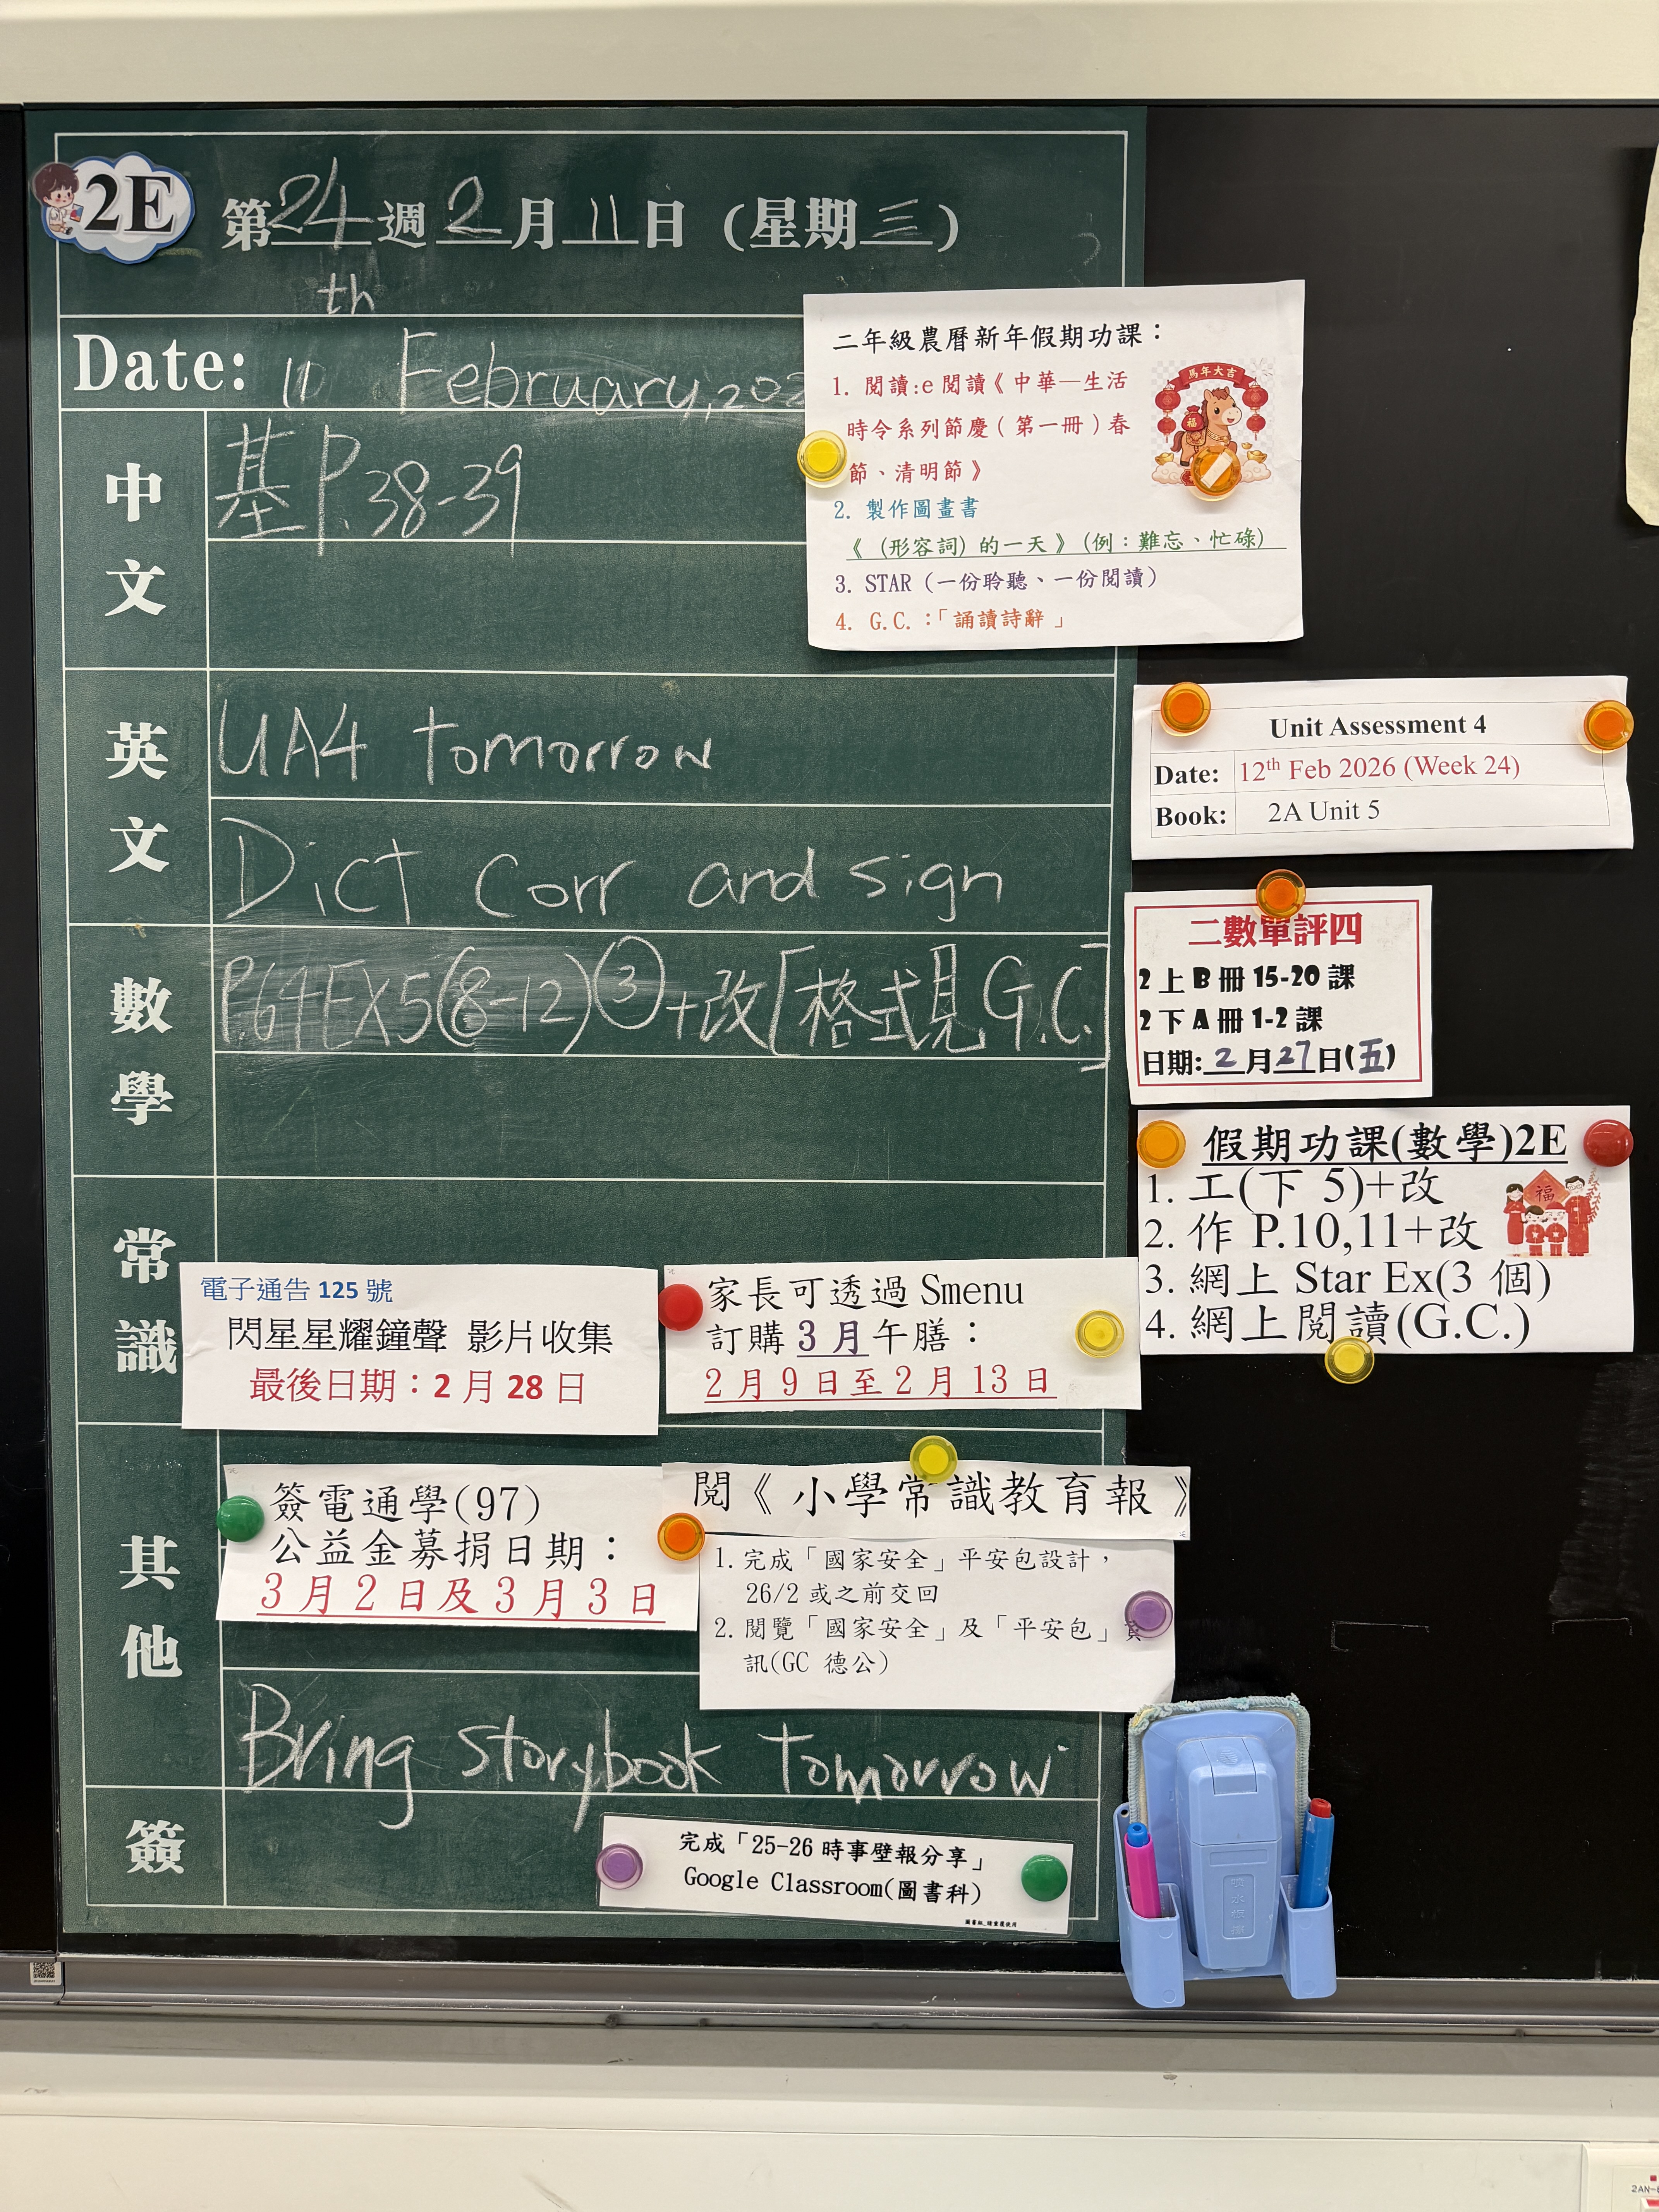 2E
第24週2月11日(星期三)
th
Date: 11 February, 202
中文
基P.38-39
英文
UA4 tomorrow
Dict Corr and sign
數學
P.64EX5(8-12)③+改[格式見G.C.]
常識
其他
Bring storybook tomorrow
簽
二年級農曆新年假期功課：
1. 閱讀:e閱讀《中華—生活
時令系列節慶(第一冊)春
節、清明節》
2. 製作圖畫書
《 (形容詞) 的一天》(例：難忘、忙碌)
3. STAR (一份聆聽、一份閱讀)
4. G.C.：「誦讀詩辭」
馬年大吉
福
Unit Assessment 4
Date: 12th Feb 2026 (Week 24)
Book: 2A Unit 5
二數單評四
2上B冊15-20課
2下A冊1-2課
日期:2月27日(五)
假期功課(數學)2E
1. 工(下 5)+改
2. 作 P.10,11+改
3. 網上 Star Ex(3 個)
4. 網上閱讀(G.C.)
福
電子通告 125 號
閃星星耀鐘聲 影片收集
最後日期：2 月 28 日
家長可透過 Smenu
訂購 3 月午膳：
2 月 9 日至 2 月 13 日
簽電通學(97)
公益金募捐日期：
3 月 2 日及 3 月 3 日
閱《小學常識教育報》
1. 完成「國家安全」平安包設計，
26/2 或之前交回
2. 閱覽「國家安全」及「平安包」資
訊(GC 德公)
完成「25-26 時事壁報分享」
Google Classroom(圖書科)